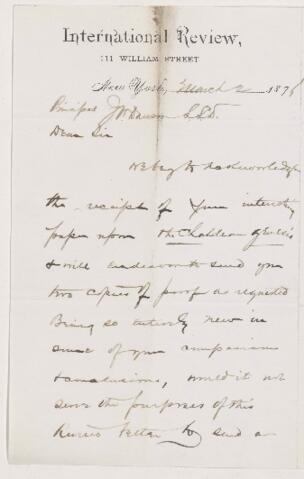 International Review,
111 WILLIAM STREET
New York, March 2 1876
Principal J W Dawson L.L.D.
Dear Sir
We beg to acknowledge
the receipt of your interesting
paper upon the Chaldean Genesis
& will endeavor to send you
two copies of proof as requested
Being so entirely new in
some of your comparisons
& conclusions, would it not
serve the purposes of this
Review better to send a